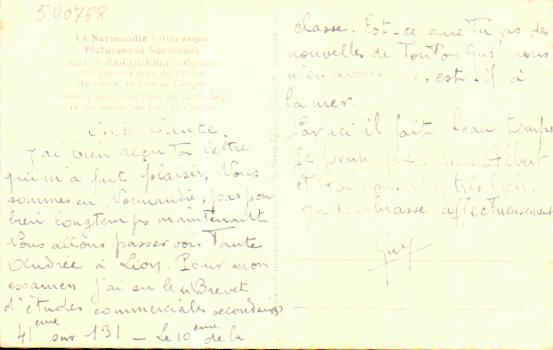 500788
La Normandie Pittoresque
Picturesque Normandy
BRICQUEBEC (Manche)
Vue générale prise du Donjon
Au centre, la Côte de Catigny
General view taken from the castle keep
In the middle the coast of Catigny
Chère Tante,
J'ai bien reçu Ta lettre
qui m'a fait plaisir, Nous
sommes en Normandie, pas pour
bien longtemps maintenant
Nous allons passer voir Tante
Andrée à Lion. Pour mon
examen: j'ai eu le "Brevet
d'études commerciales secondaires)
41ème sur 131 - Le 10ème de la
classe. Est-ce que Tu as des
nouvelles de Tonton Gus' nous
n'en avons pas, est-il à
la mer.
Par ici il fait beau temps
Je pense que Albert
et Toi vous allez très bien.
Je t'embrasse affectueusement
Guy